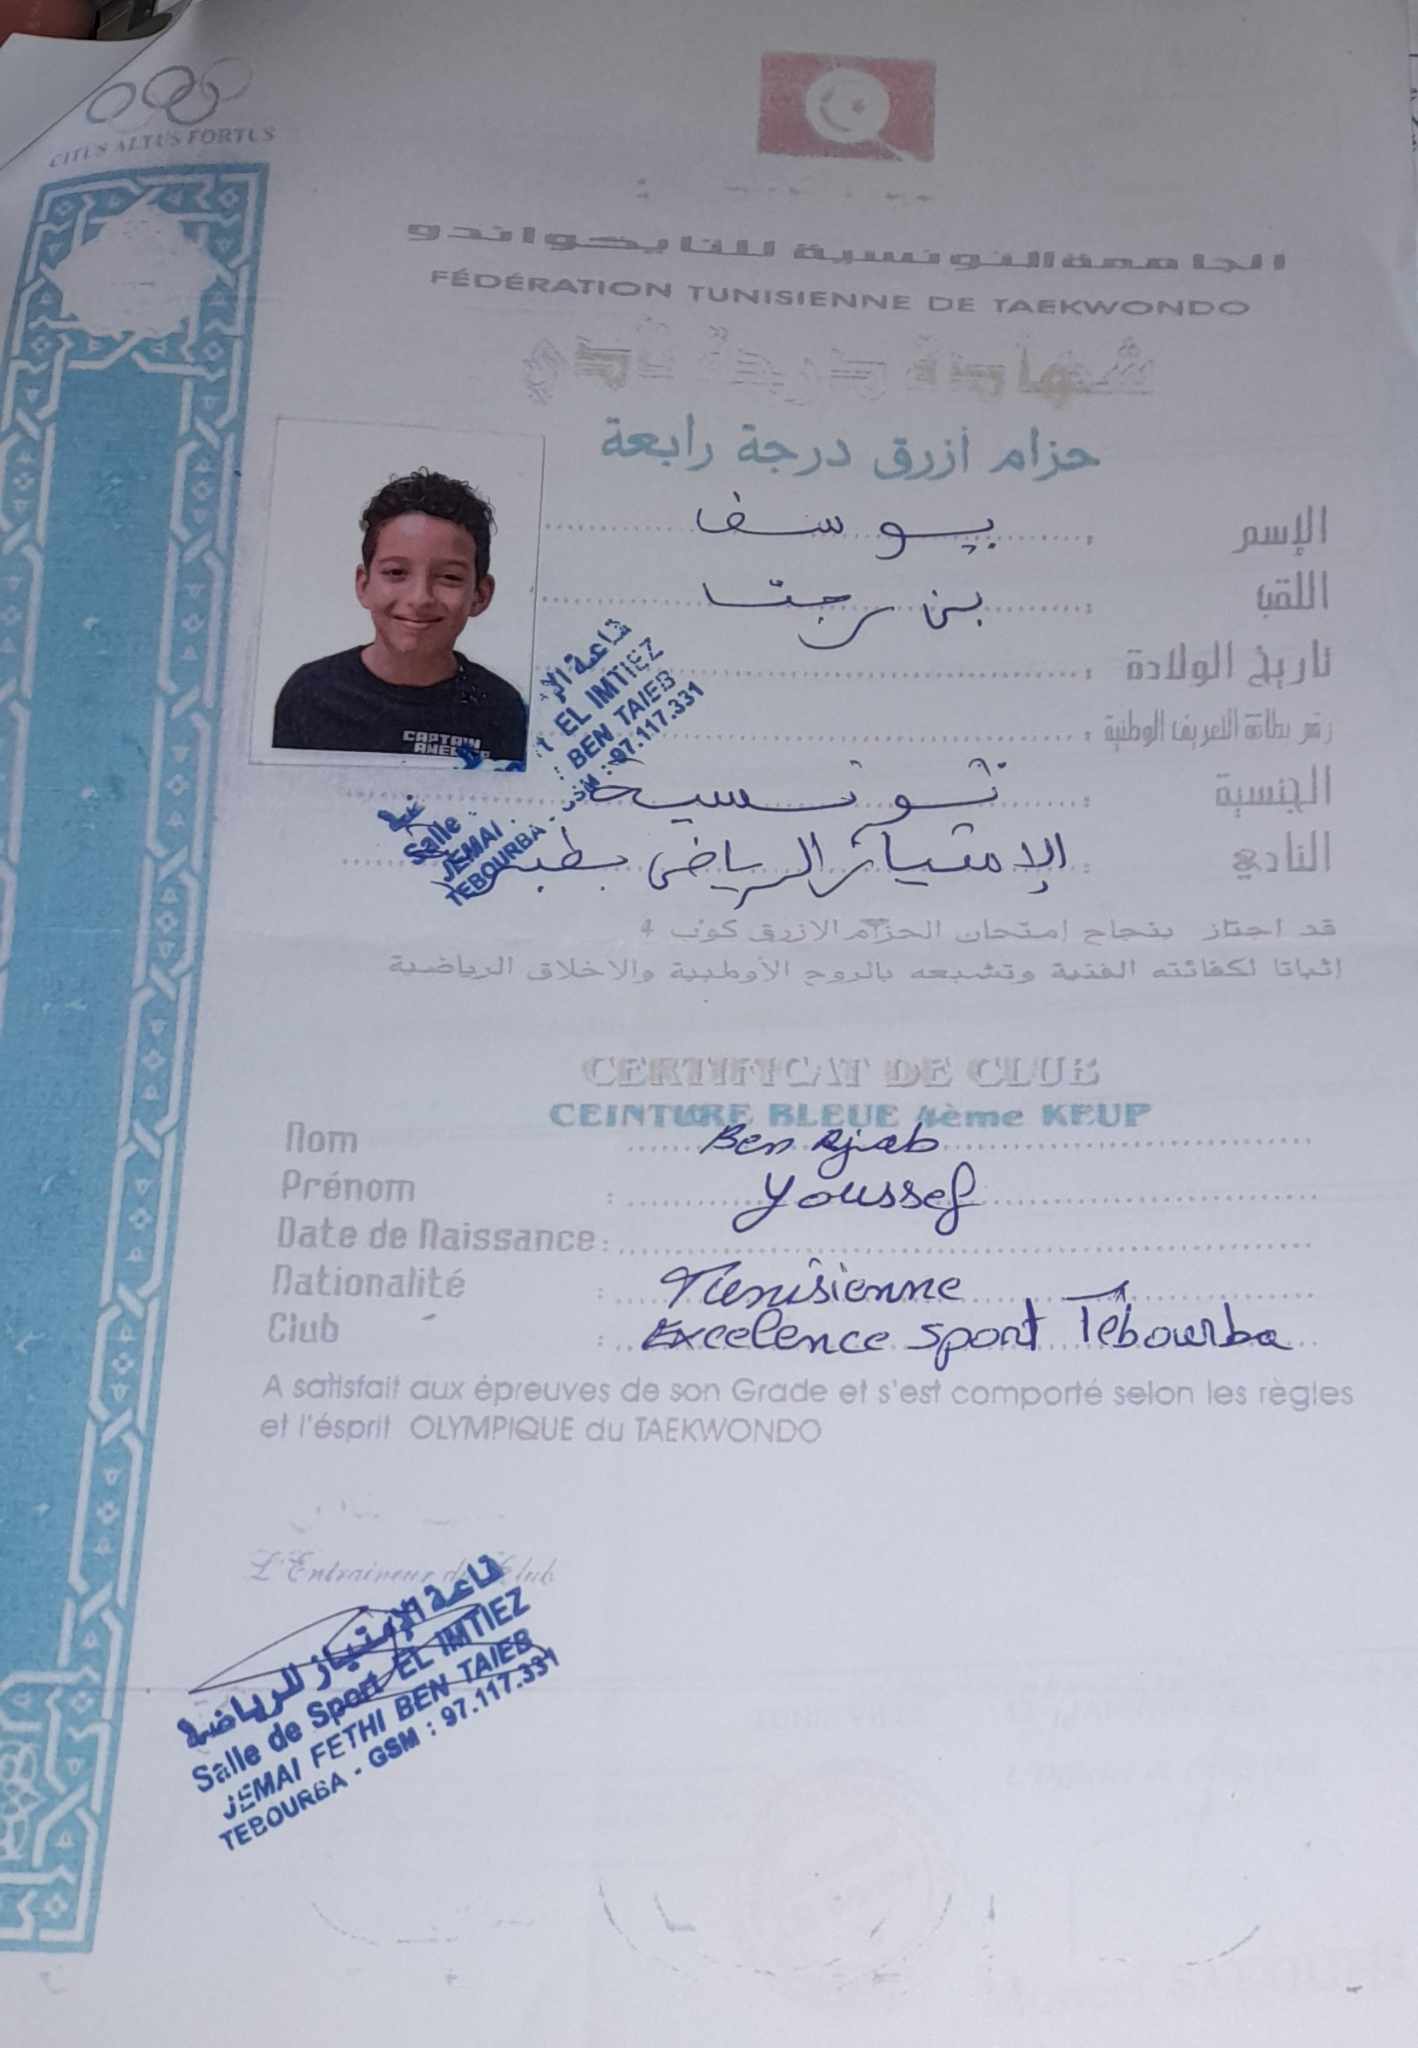 CITUS ALTUS FORTUS
الجامعة التونسية للتايكواندو
FÉDÉRATION TUNISIENNE DE TAEKWONDO
حزام أزرق درجة رابعة
الإسم : يوسف
اللقب : بن رجب
تاريخ الولادة :
رقم بطاقة التعريف الوطنية :
الجنسية : تونسية
النادي : الإمتياز الرياضي بطبر
CAPTAIN
قاعة الإ
EL IMTIEZ
Salle : BEN TAIEB
JEMAI : 97.117.331
TEBOURBA -
قد اجتاز بنجاح إمتحان الحزام الازرق كوب 4
إثباتا لكفائته الفنية وتشبعه بالروح الأولمبية والاخلاق الرياضية
CERTIFICAT DE CLUB
CEINTURE BLEUE 4ème KEUP
Nom Ben Rjeb
Prénom : Youssef
Date de Naissance :
Nationalité : Tunisienne
Club : Excelence sport Tebourba
A satisfait aux épreuves de son Grade et s'est comporté selon les règles
et l'ésprit OLYMPIQUE du TAEKWONDO
L'Entraineur du Club
قاعة الإمتياز للرياضة
Salle de Sport EL IMTIEZ
JEMAI FETHI BEN TAIEB
TEBOURBA - GSM : 97.117.331